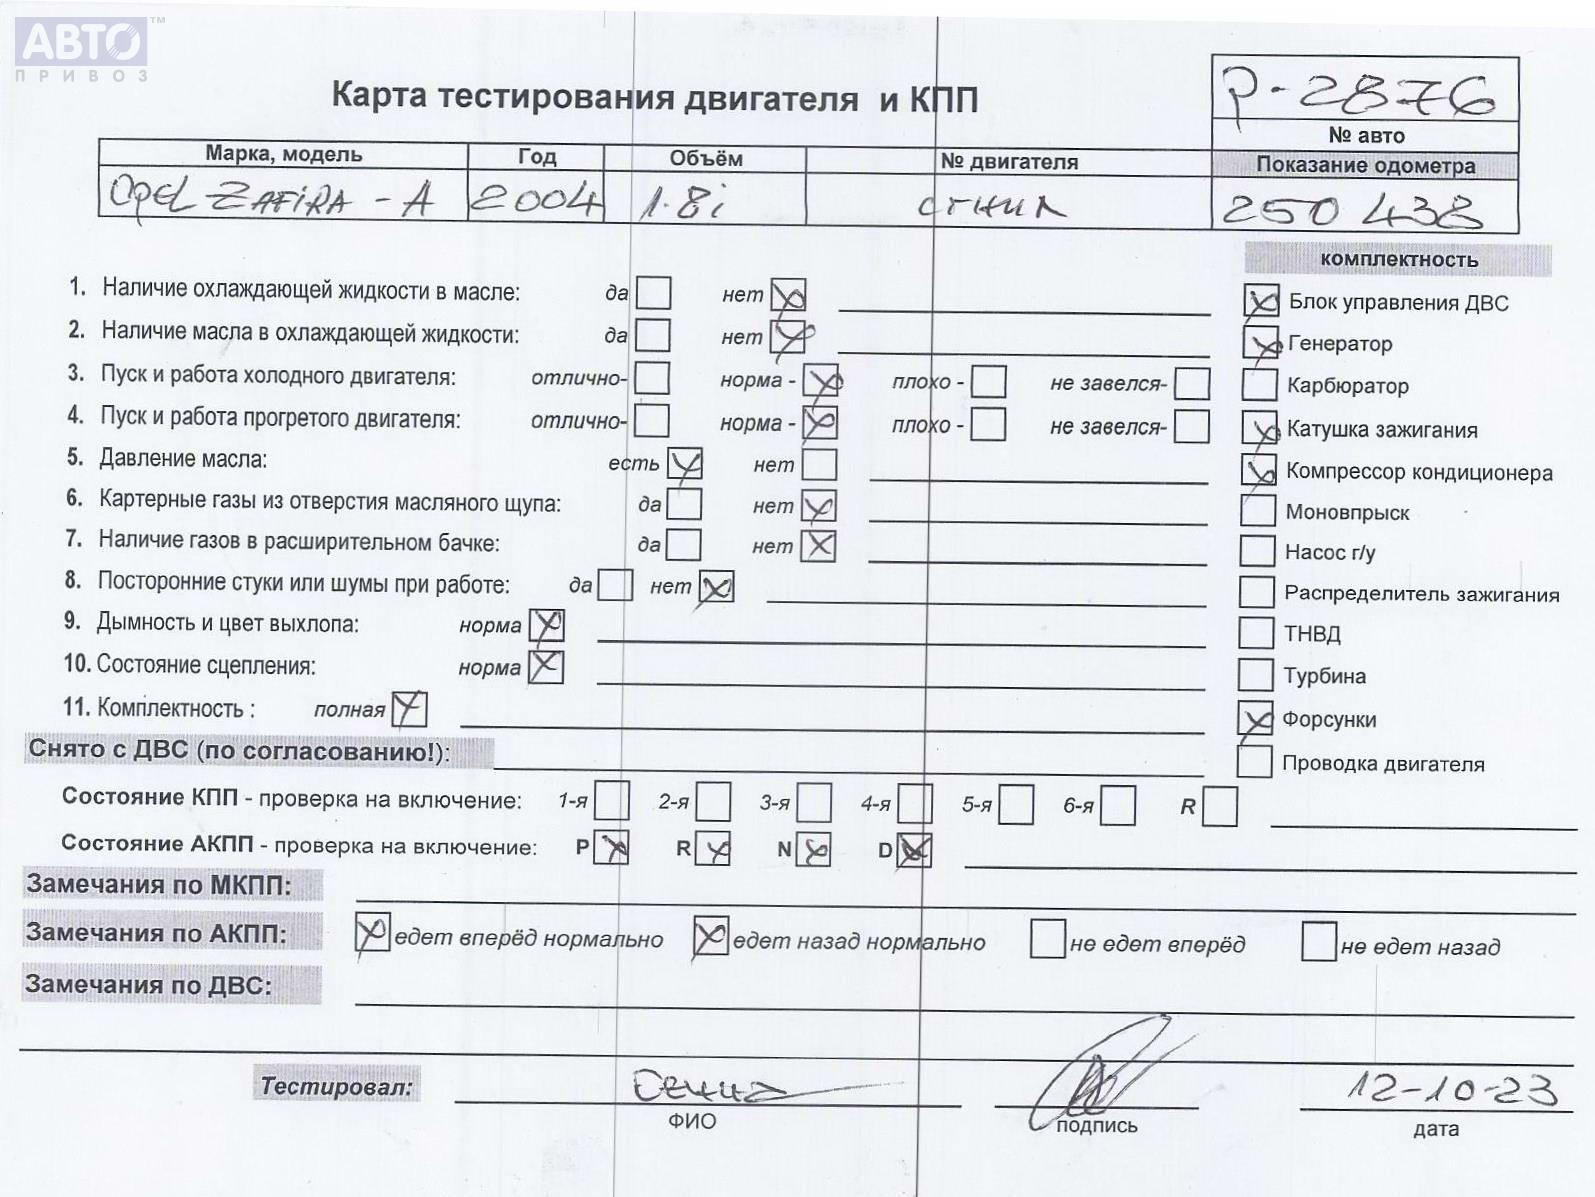 АВТО™
ПРИВОЗ
Карта тестирования двигателя и КПП
Р-2876
№ авто
Марка, модель Год Объём № двигателя Показание одометра
Opel ZAFIRA - A 2004 1.8i сгнил 250 438
комплектность
1. Наличие охлаждающей жидкости в масле: да нет
Блок управления ДВС
2. Наличие масла в охлаждающей жидкости: да нет
Генератор
3. Пуск и работа холодного двигателя: отлично- норма - плохо - не завелся-
Карбюратор
4. Пуск и работа прогретого двигателя: отлично- норма - плохо - не завелся-
Катушка зажигания
5. Давление масла: есть нет
Компрессор кондиционера
6. Картерные газы из отверстия масляного щупа: да нет
Моновпрыск
7. Наличие газов в расширительном бачке: да нет
Насос г/у
8. Посторонние стуки или шумы при работе: да нет
Распределитель зажигания
9. Дымность и цвет выхлопа: норма
ТНВД
10. Состояние сцепления: норма
Турбина
11. Комплектность : полная
Форсунки
Снято с ДВС (по согласованию!):
Проводка двигателя
Состояние КПП - проверка на включение: 1-я 2-я 3-я 4-я 5-я 6-я R
Состояние АКПП - проверка на включение: P R N D
Замечания по МКПП:
Замечания по АКПП: едет вперёд нормально едет назад нормально не едет вперёд не едет назад
Замечания по ДВС:
Тестировал: 12-10-23
ФИО подпись дата